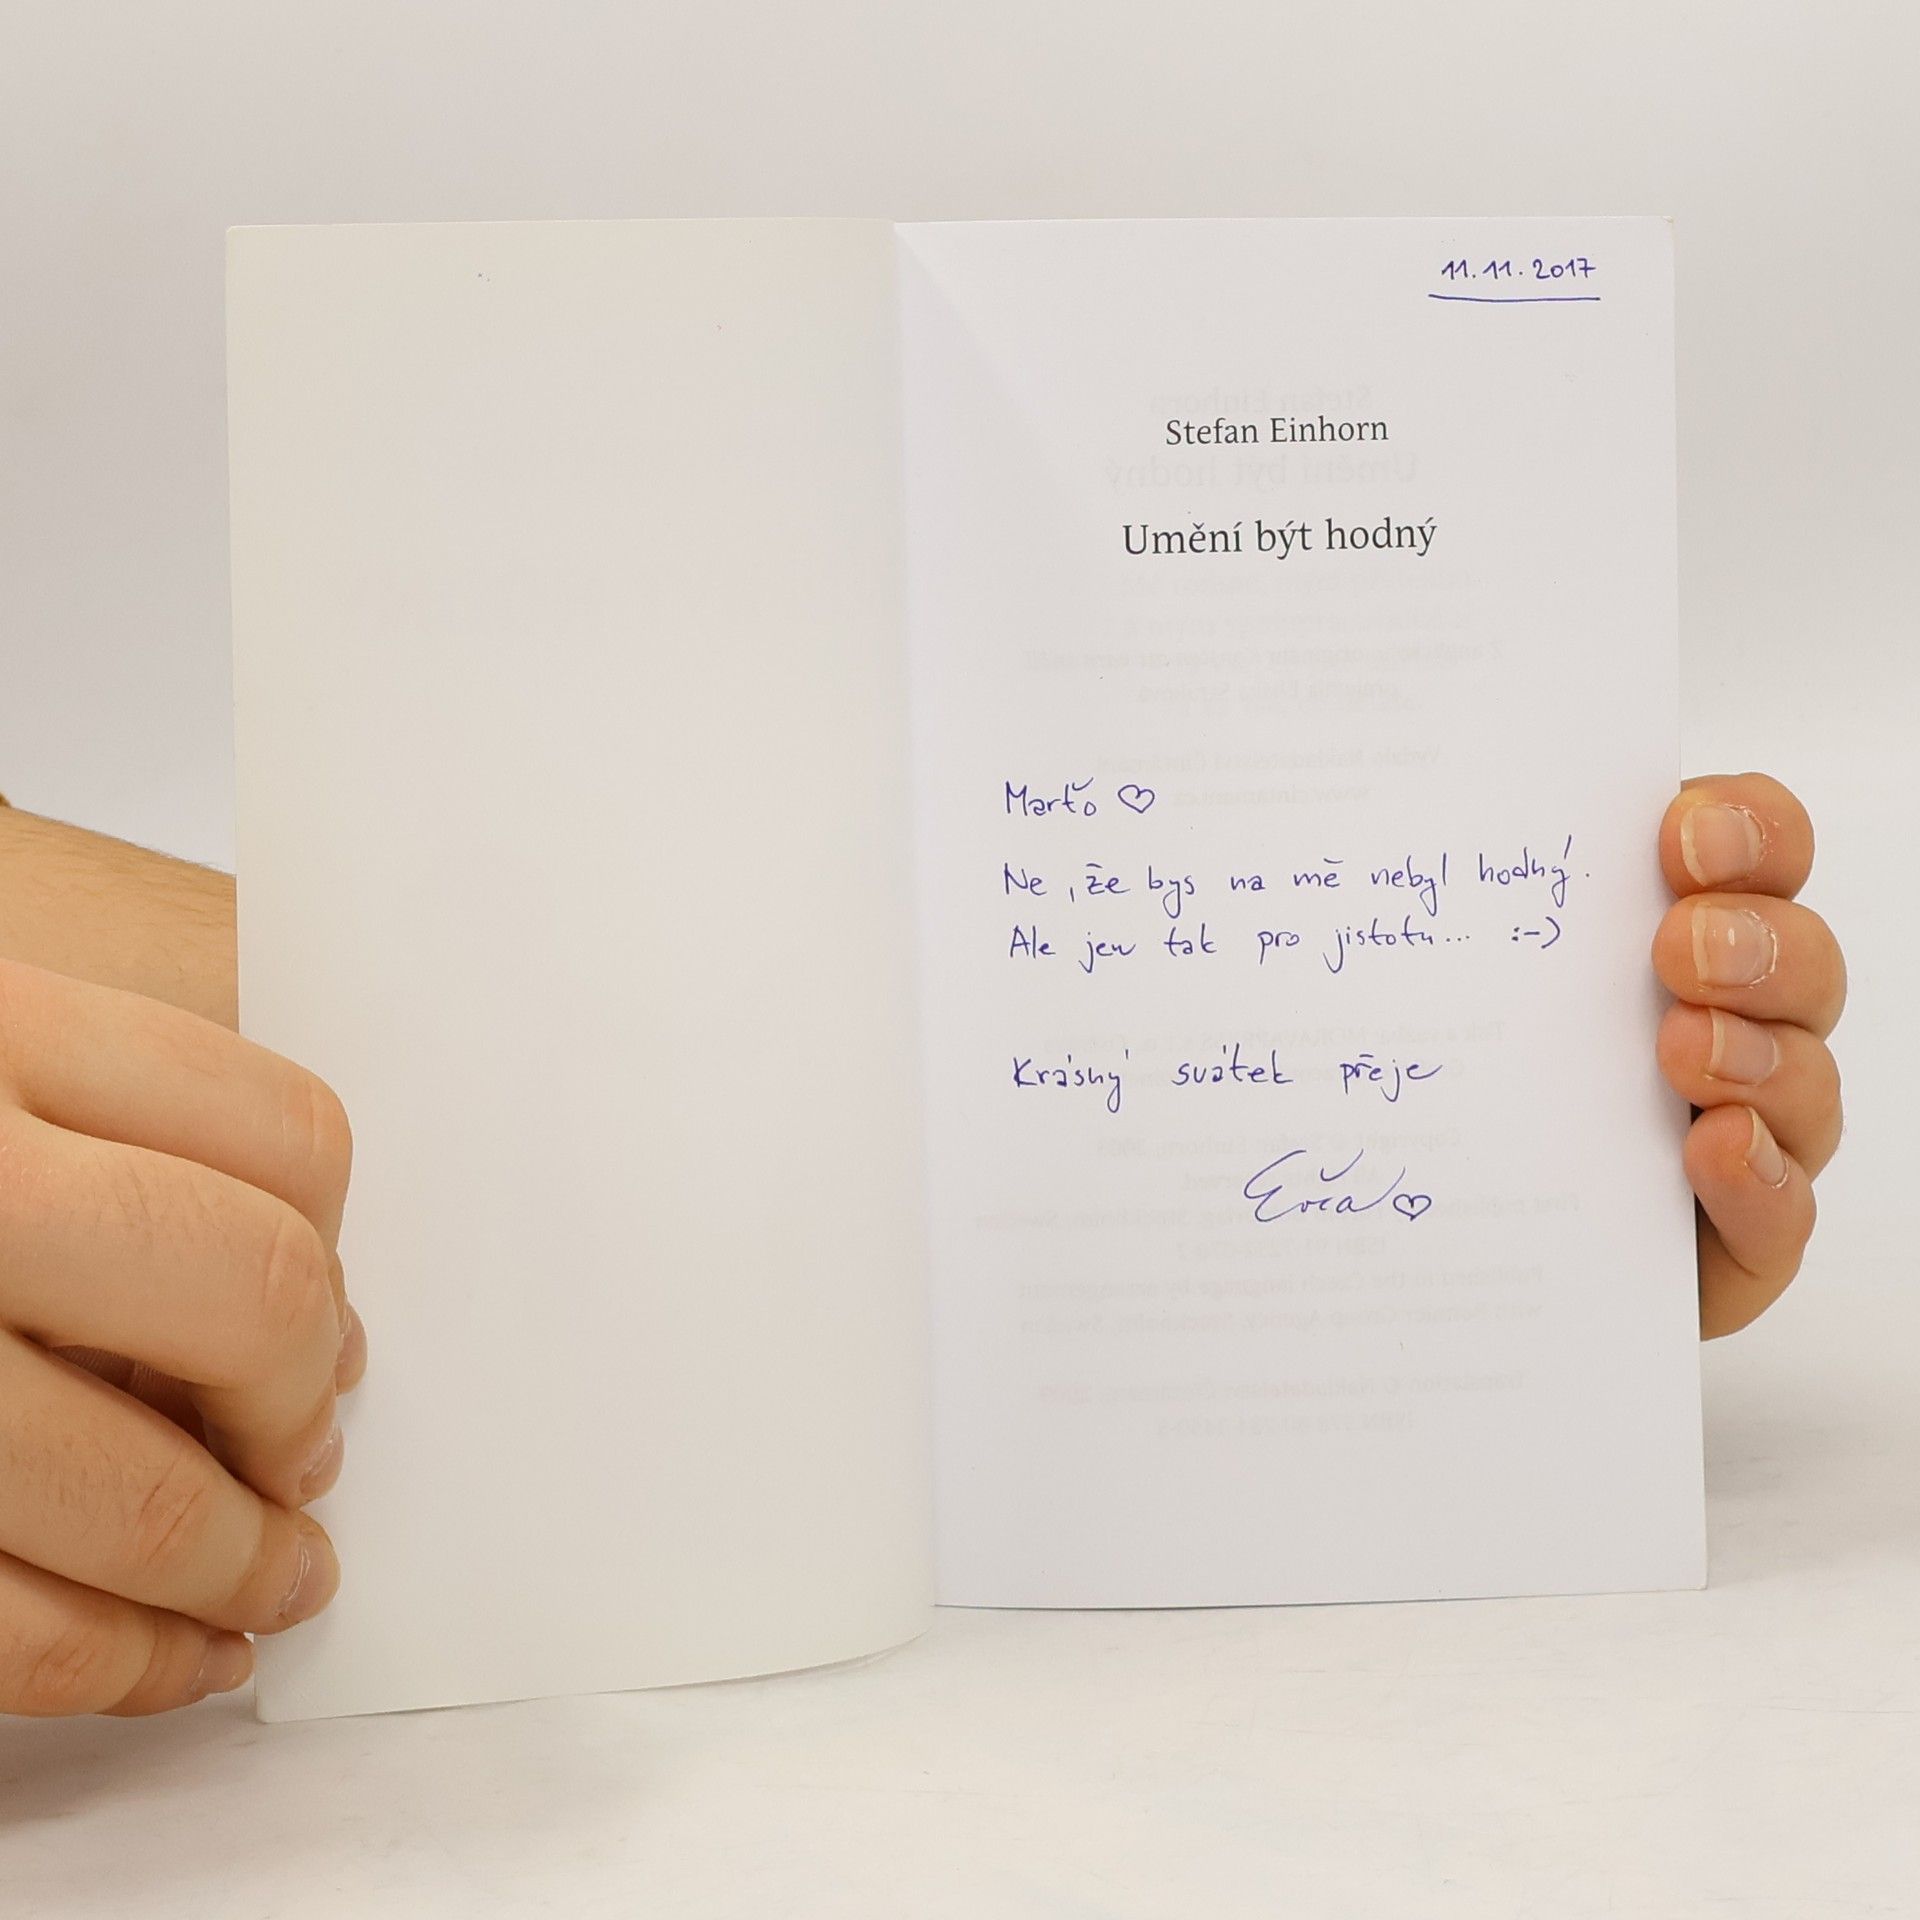 11.11.2017
Stefan Einhorn
Umění být hodný
Marťo ♡
Ne, že bys na mě nebyl hodný.
Ale jen tak pro jistotu... :-)
Krásný svátek přeje
Evča ♡